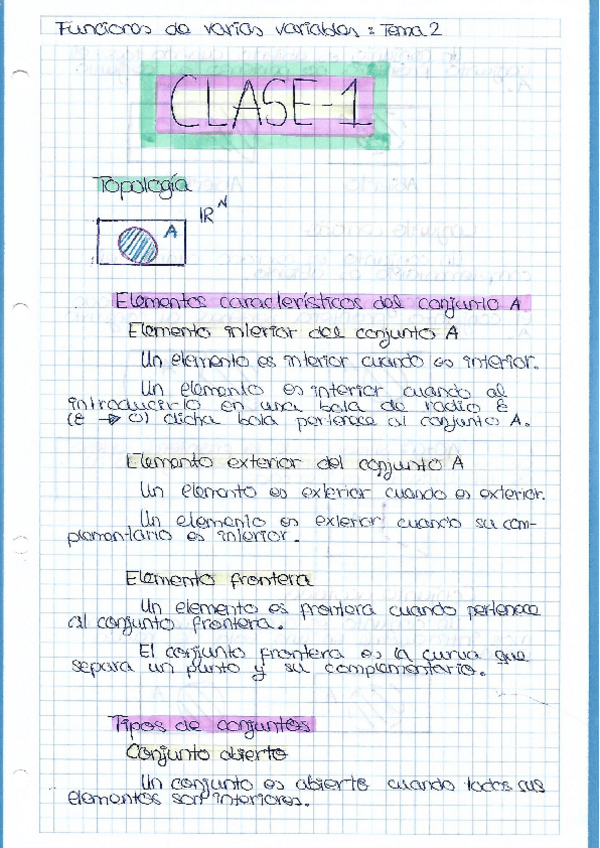 Funciones de varias variables : Tema 2
CLASE-1
Topología
A
IR^N
Elementos característicos del conjunto A
Elemento interior del conjunto A
Un elemento es interior cuando es interior.
Un elemento es interior cuando al
introducirlo en una bola de radio ε
(ε → 0) dicha bola pertenece al conjunto A.
Elemento exterior del conjunto A
Un elemento es exterior cuando es exterior.
Un elemento es exterior cuando su com-
plementario es interior.
Elemento frontera
Un elemento es frontera cuando pertenece
al conjunto frontera.
El conjunto frontera es la curva que
separa un punto y su complementario.
Tipos de conjuntos
Conjunto abierto
Un conjunto es abierto cuando todos sus
elementos son interiores.